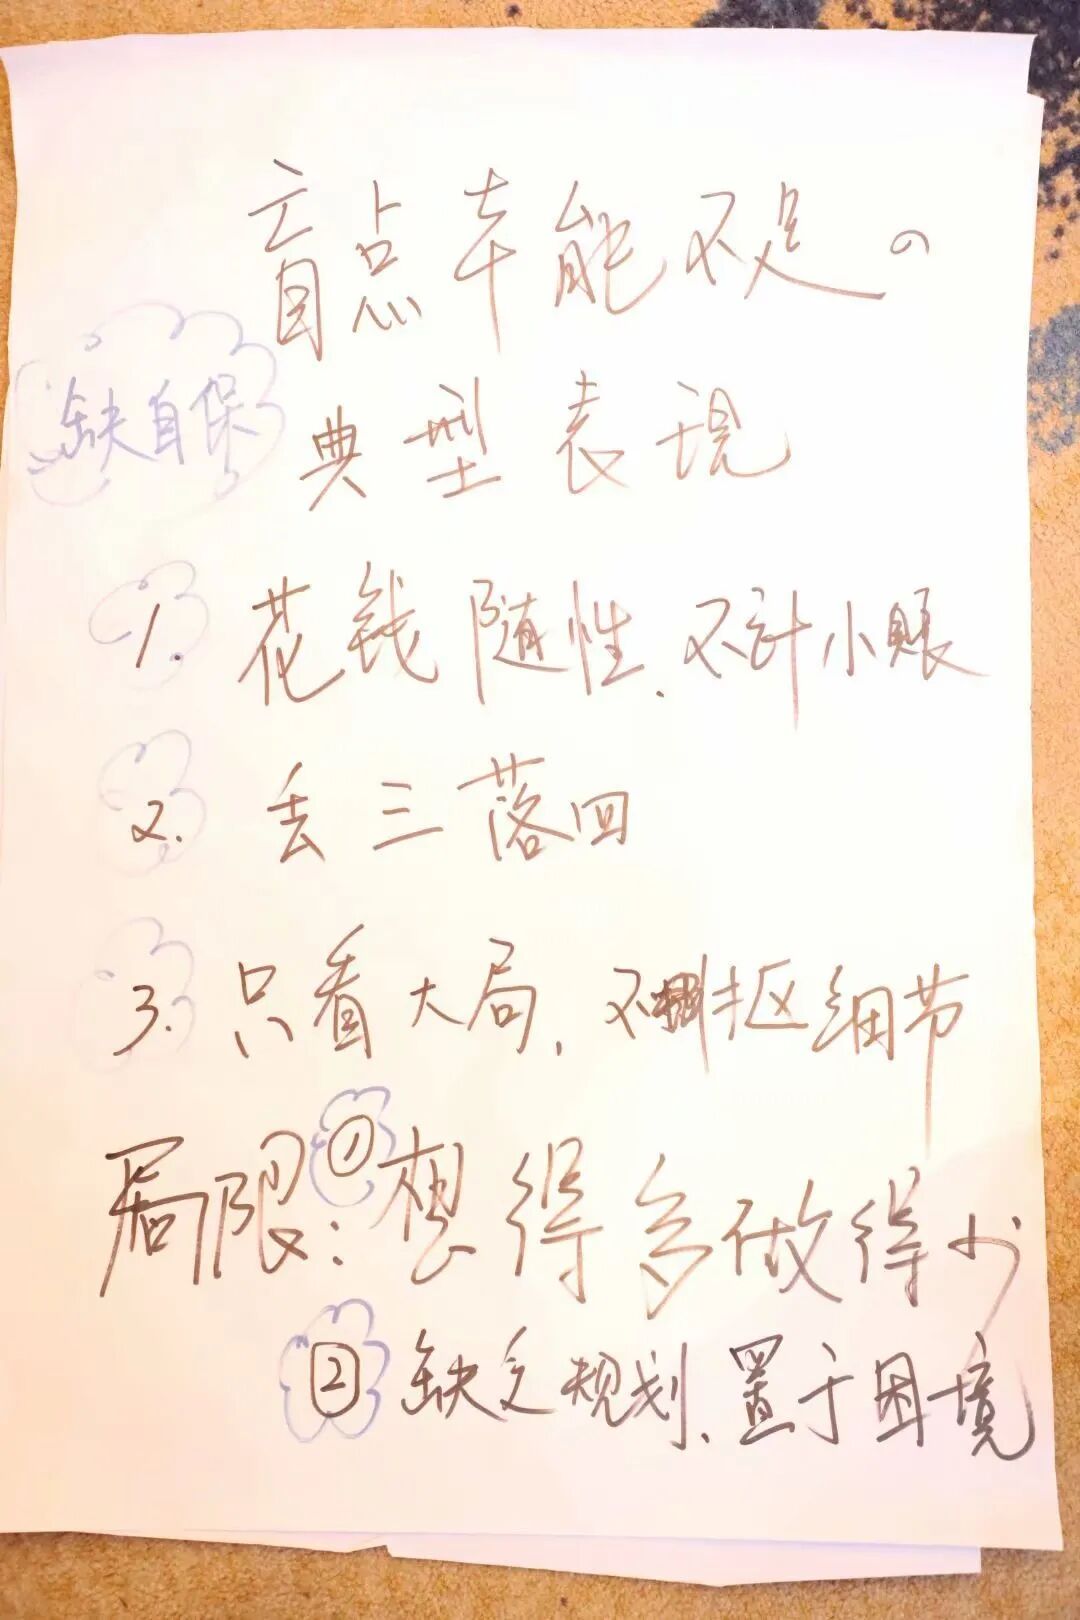 盲点本能不足の
缺自保
典型表现
1. 花钱随性、不计小账
2. 丢三落四
3. 只看大局,不抠细节
局限:①想得多做得少
②缺乏规划、置于困境